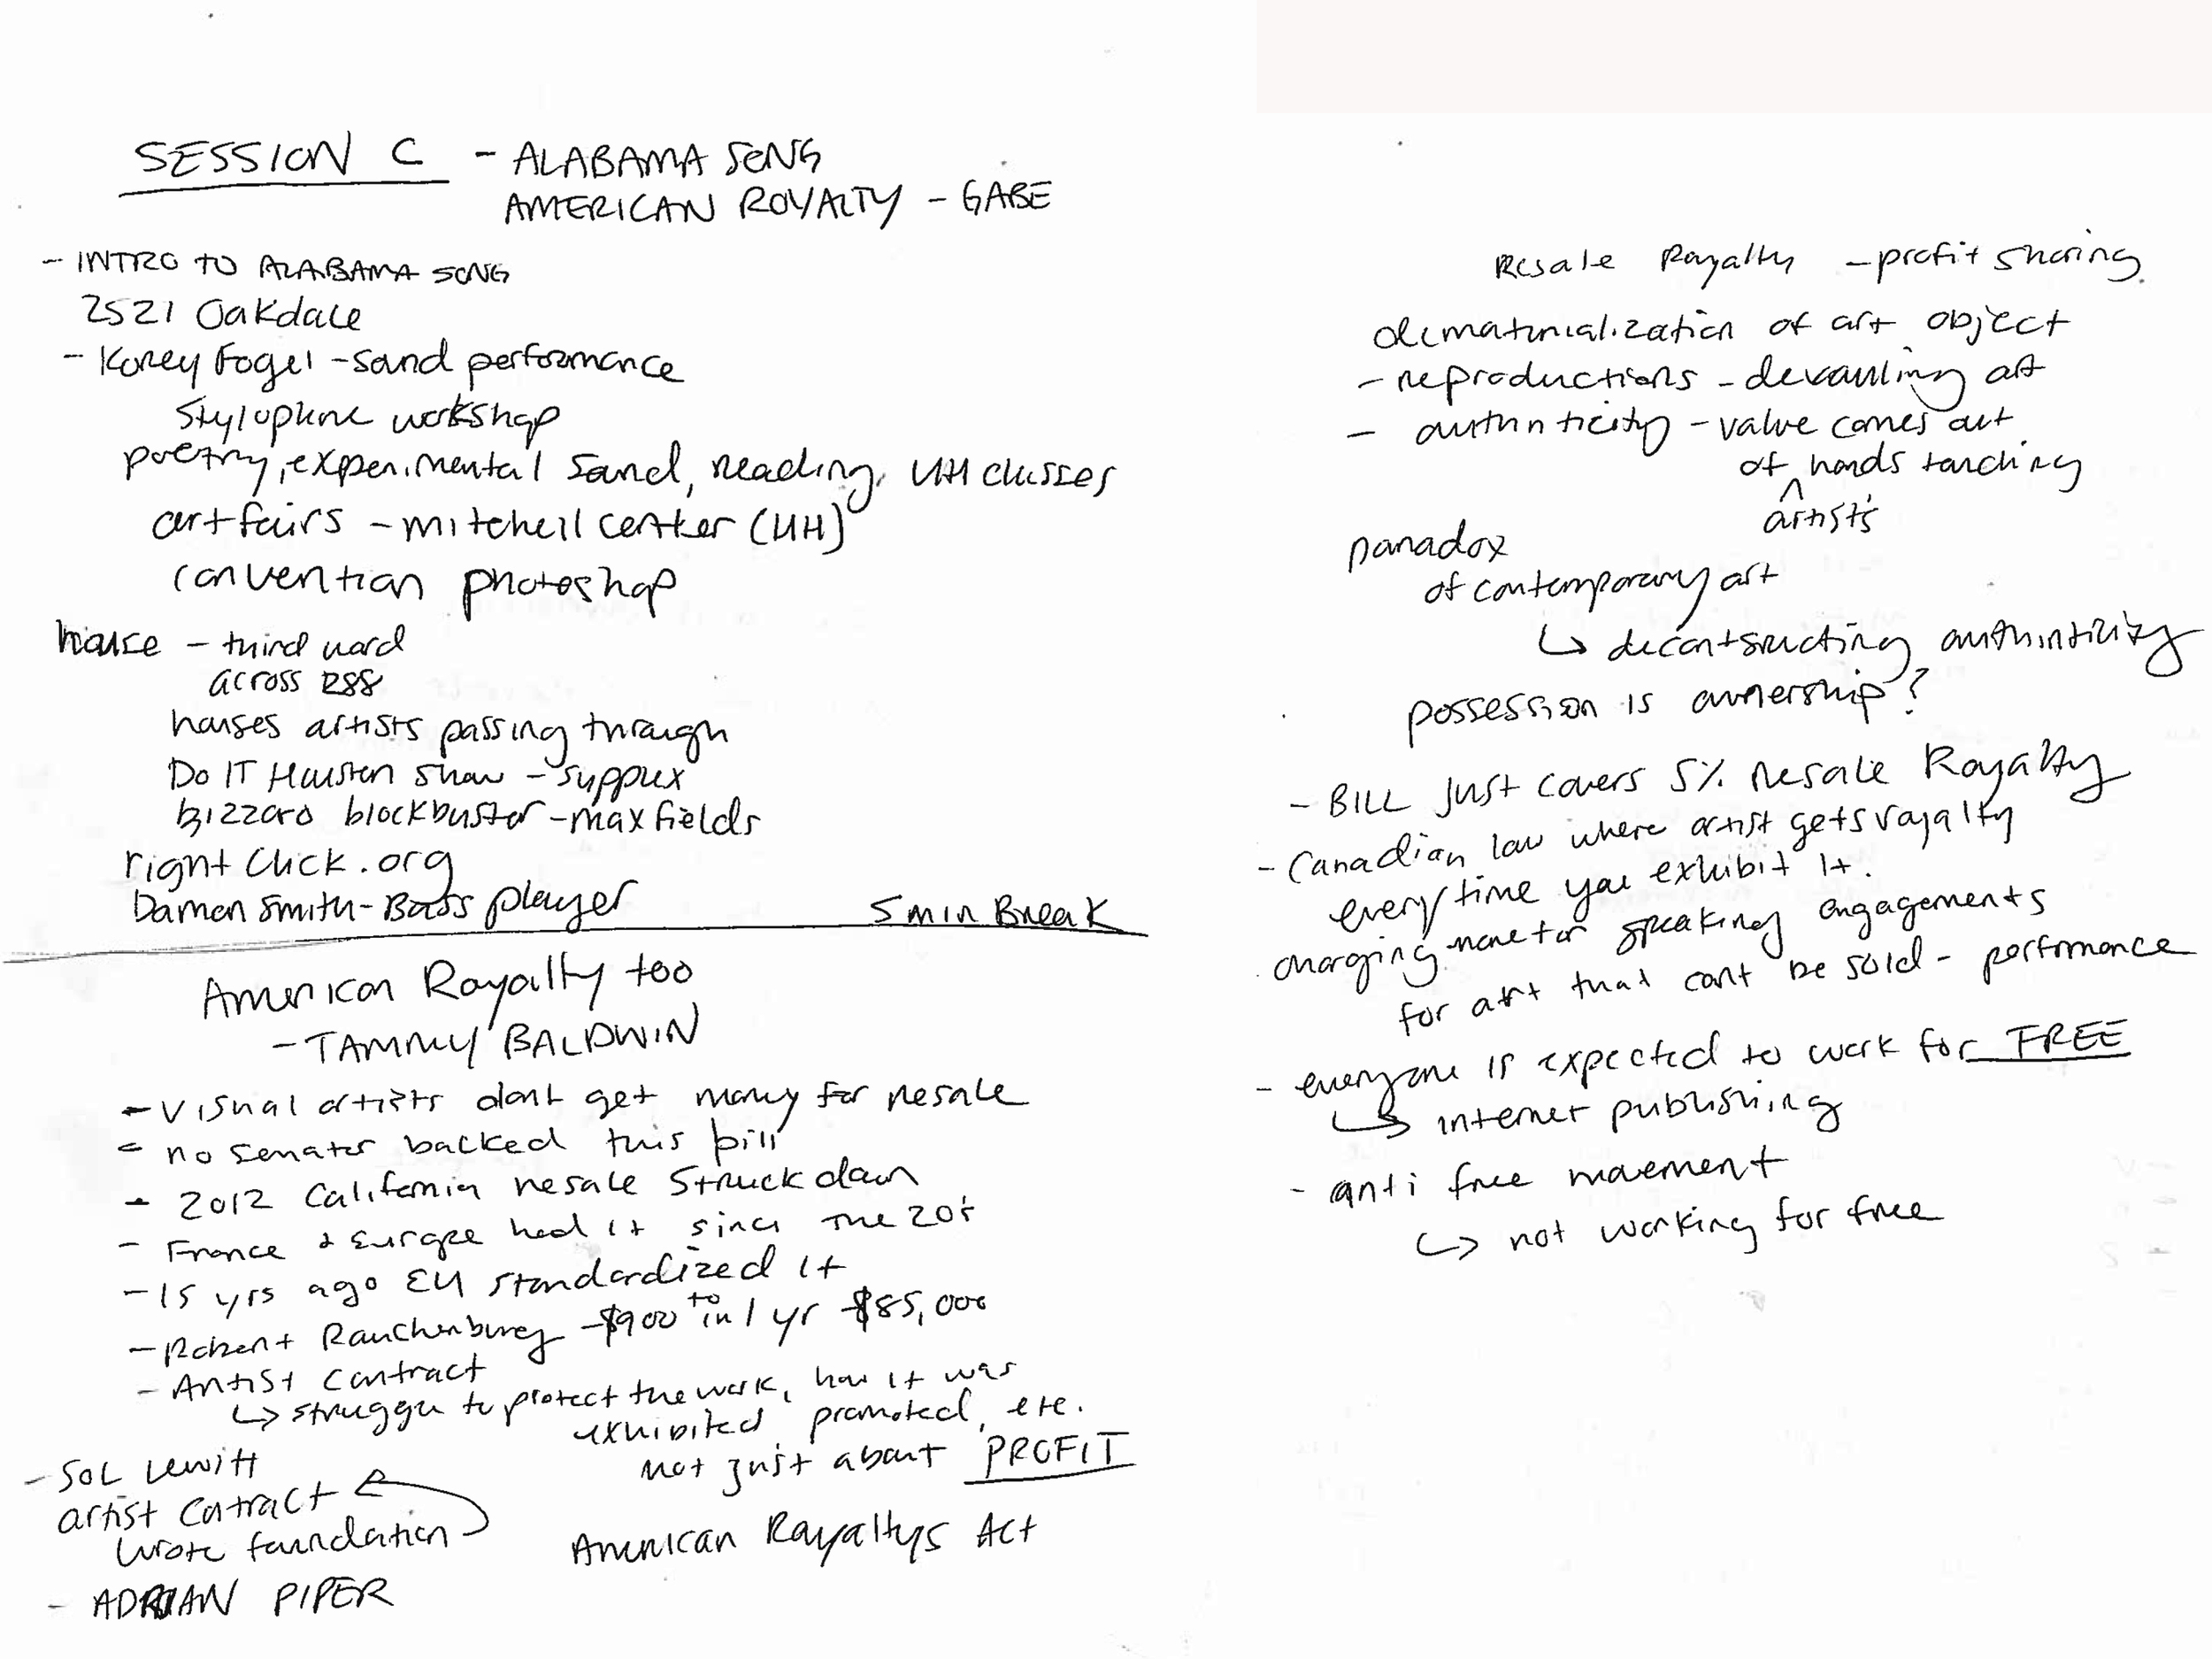 SESSION C - ALABAMA SONG
AMERICAN ROYALTY - GABE
- INTRO TO ALABAMA SONG
2521 Oakdale
- Korey Fogel - sand performance
Stylophone workshop
poetry, experimental sand, reading, UH classes
art fairs - mitchell center (UH)
convention photoshop
house - third ward
across 288
houses artists passing through
Do IT Houston show - suppux
bizzaro blockbuster - max fields
right click.org
Damon Smith - Bass player
5 min Break
American Royalty too
- TAMMY BALDWIN
- visual artists dont get money for resale
- no senator backed this bill
- 2012 California resale struck down
- France & Europe had it since the 20's
- 15 yrs ago EU standardized it
- Robert Rauchenburg - $900 to in 1 yr $85,000
- Artist contract
↳ struggle to protect the work, how it was
exhibited, promoted, etc.
not just about PROFIT
- SOL Lewitt
artist contract
wrote foundation
American Royaltys Act
- ADRIAN PIPER
Resale Royalty - profit sharing
dematerialization of art object
- reproductions - devauling art
- authenticity - value comes out
of hands touching
^
artist's
paradox
of contemporary art
↳ decontsructing authenticity
possession is ownership?
- BILL just covers 5% resale Royalty
- Canadian law where artist gets royalty
every time you exhibit it.
charging more for speaking engagements
for art that cant be sold - performance
- everyone is expected to work for FREE
↳ internet publishing
- anti free movement
↳ not working for free